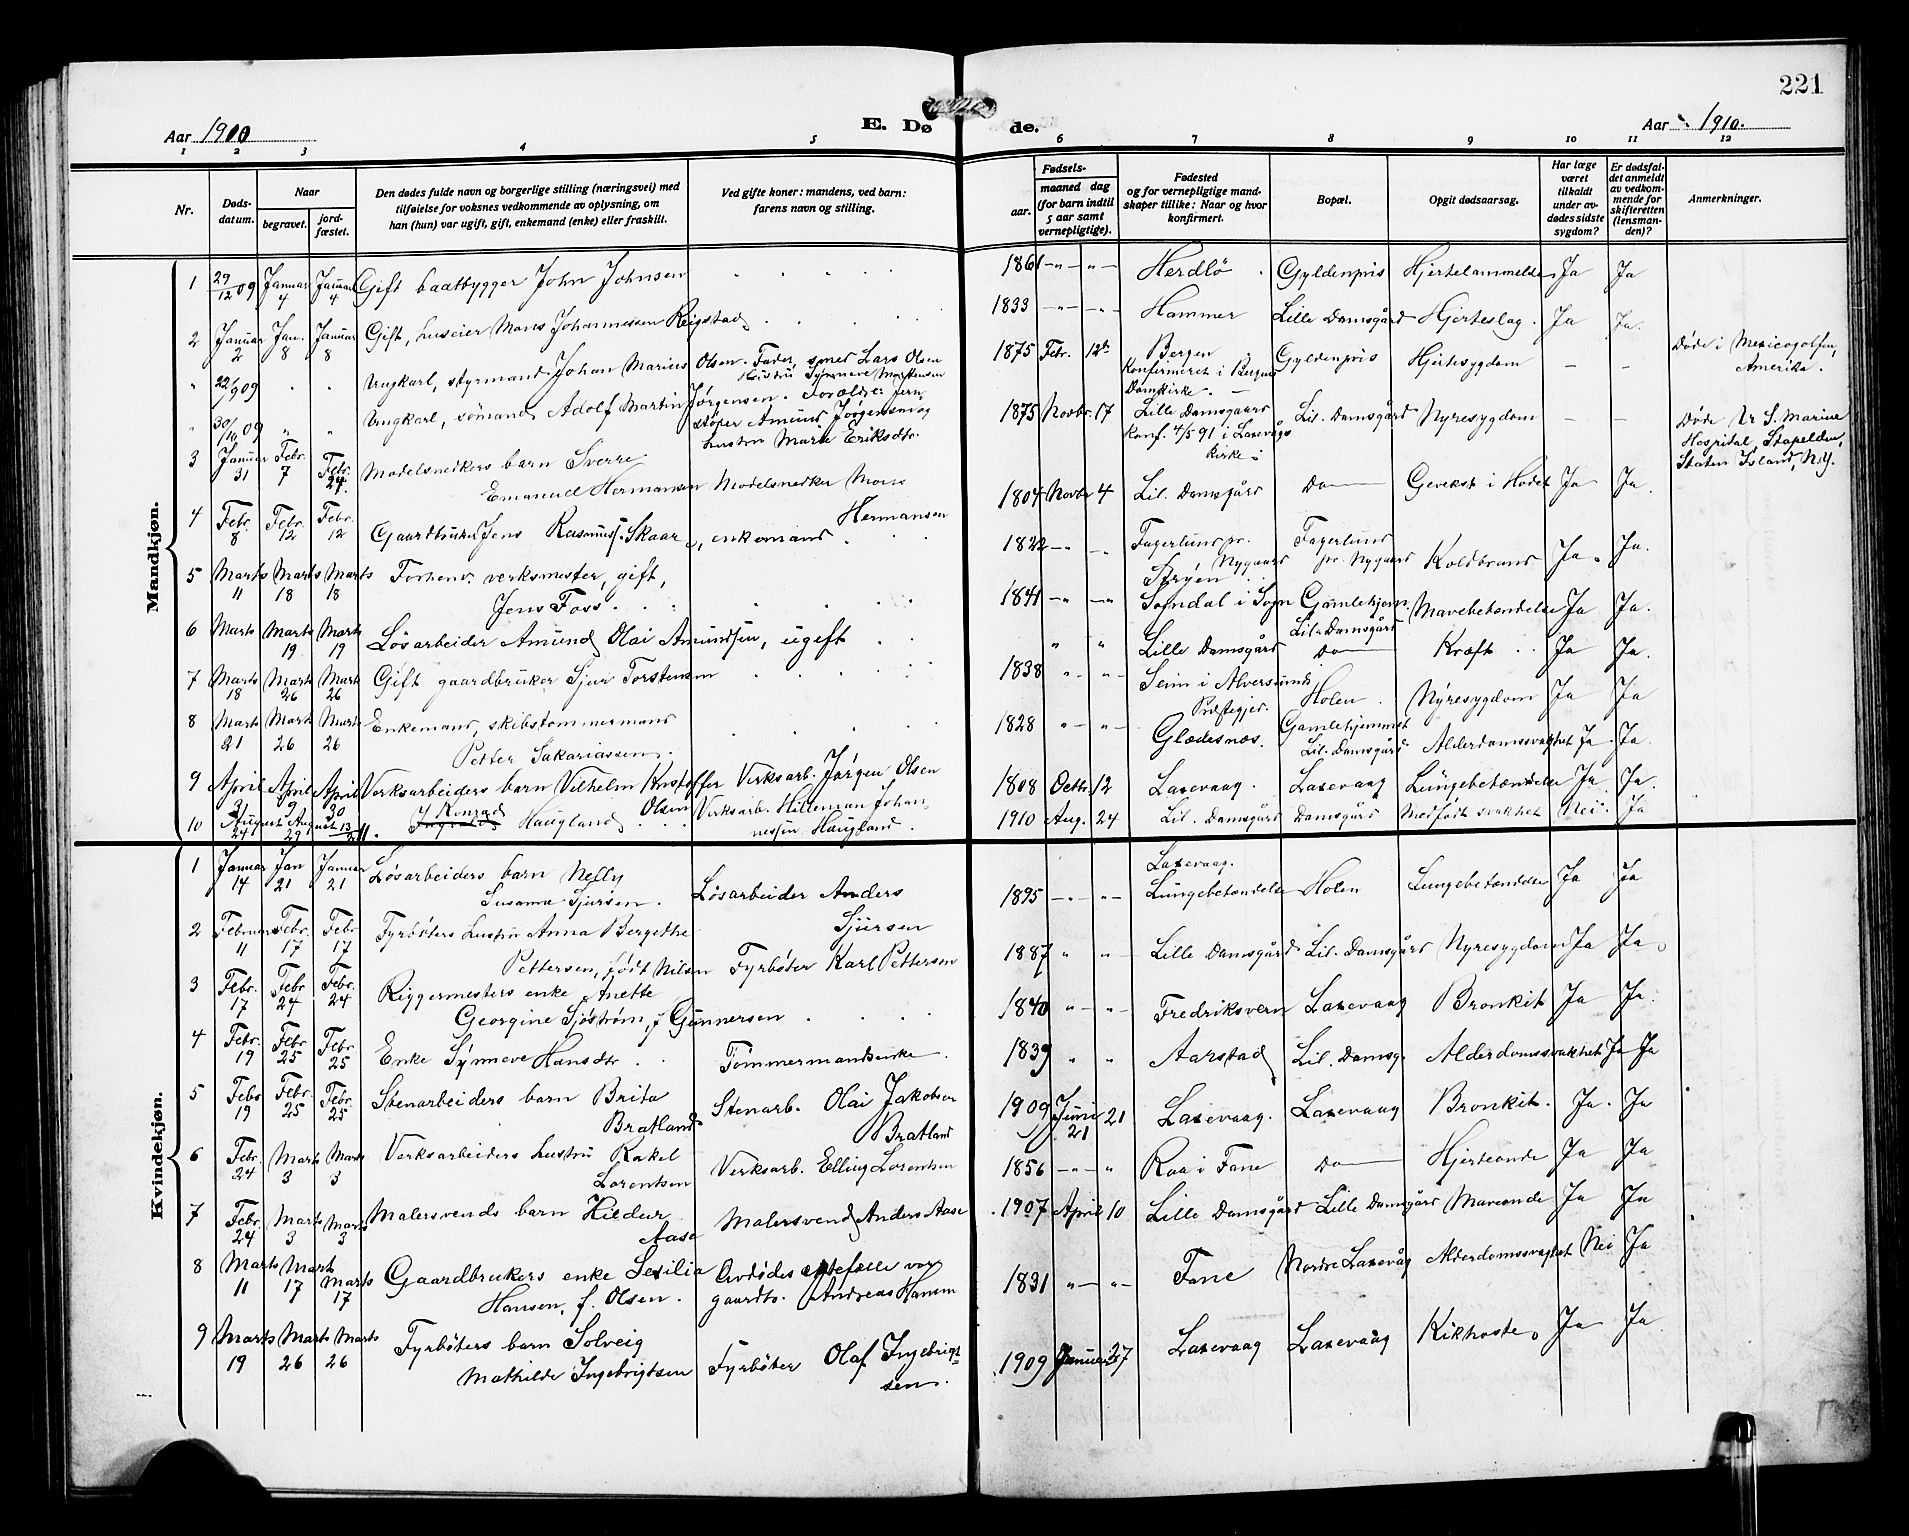 221
Aar 1910
E. Døde.
Aar 1910.
1 2 3 4 5 6 7 8 9 10 11 12
Nr.
Døds-
datum.
Naar
begravet.
jord-
fæstet.
Den dødes fulde navn og borgerlige stilling (næringsvei) med
tilføielse for voksnes vedkommende av oplysning, om
han (hun) var ugift, gift, enkemand (enke) eller fraskilt.
Ved gifte koner: mandens, ved barn:
farens navn og stilling.
Fødsels-
aar.
maaned
dag
(for barn indtil
5 aar samt
vernepligtige).
Fødested
og for vernepligtige mand-
skaper tillike: Naar og hvor
konfirmert.
Bopæl.
Opgit dødsaarsag.
Har læge
været
tilkaldt
under av-
dødes sidste
sygdom?
Er dødsfal-
det anmeldt
av vedkom-
mende for
skifteretten
(lensman-
den)?
Anmerkninger.
Mandkjøn.
1 29/12 09 Januar 4 Januar 4 Gift baatbygger John Johnsen 1861 Herdlø Gyldenpris Hjertelammelse Ja Ja
2 Januar 2 Jan. 8 Januar 8 Gift, huseier Mons Johannessen Reigstad 1833 Hammer Lille Damsgård Hjerteslag. Ja Ja.
" 22/9 09 " " Ungkarl, styrmand Johan Marius Olsen. Fader, smed Lars Olsen
Hustru Synneve Martinsen
1875 Febr. 12te Bergen Gyldenpris Hjertesygdom — —
Konfirmeret i Bergens
Domkirke. —
Døde i Mexicogolfen,
Amerika.
" 30/10 09 " " Ungkarl, sømand Adolf Martin Jørgensen. Forældre: Jern-
støper Amund Jørgensen og
hustru Marie Eriksdtr.
1875 Novbr. 17 Lille Damsgaard Lil. Damsgård Nyresygdom — —
Konf. 4/5 91 i Laxevågs
Kirke
Døde Ur S. Marine
Hospital, Stapelden,
Staten Island, N.Y.
3 Januar 31 Febr. 7 Febr. 24. Modelsnedkers barn Sverre
Emanuel Hermansen Modelsnedker Mons
Hermansen
1804 Novbr 4 Lil. Damsgård Do Gevekst i Hodet Ja Ja.
4 Febr. 8 Febr. 12 Febr. 12 Gaardbruker Jens Rasmuss. Skaar, enkemand 1822 Fagerlund pr.
Nygaard
Fagerlund
pr. Nygaard Koldbrand Ja. Ja.
5 Marts 11 Marts 18 Marts 18 Forhenv. verksmester, gift,
Jens Foss.
Stryen
1841 Sogndal i Sogn Gamlehjem. Mavebetændelse Ja Ja.
Lil. Damsgård
6 Marts Marts 19 Marts 19 Løsarbeider Amund Olai Amundsen, ugift " " Lille Damsgård Do Kræft Ja Ja.
7 Marts 18 Marts 26 Mart 26 Gift gaardbruker Sjur Torstensen 1838 Seim i Alversund
Præstegjed. Holen. Nyresygdom Ja Ja
8 Marts 21 Mart 26 Mart 26 Enkemand, skibstømmermand
Petter Sakariassen.
1828 Glædesnæs. Gamlehjemmet
Lil. Damsgård Alderdomssvakhet Ja. Ja.
9 April 3 April 9 April 20 Verksarbeiders barn Vilhelm Kristoffer
Olsen Verksarb. Jørgen Olsen
1808 Octb. 12 Laxevaag. Laxevaag Lungebetændelse Ja Ja.
10 August 24 August 29 13/11. Konrad
Haugland Verksarb. Hilleman Johan-
nessen Haugland.
1910 Aug. 24 Lil. Damsgård Damsgård Medfødt svakhet Nei. Ja
Kvindekjøn.
1 Januar 14 Jan 21 Januar 21 Løsarbeiders barn Nelly
Susanna Sjursen. Løsarbeider Anders
Sjursen
Laxevaag.
1895 Lungebetændelse Holen Lungebetændelse Ja Ja
2 Februar 11 Febr. 17 Febr 17 Fyrbøters hustru Anna Bergethe
Pettersen, født Nilsen Fyrbøter Karl Pettersen
1887 Lille Damsgård Lil. Damsgård Nyresygdom Ja Ja.
3 Febr. 17 Febr 24 Febr. 24 Riggermesters enke Anette
Georgine Sjøstrøm, f Gunnersen
1840 Fredriksvern Laxevaag Bronkit Ja Ja.
4 Febr. 19 Febr 25 Febr. 25 Enke Synneve Hansdtr. Tømmermandsenke.
1839 Aarstad Lil. Damsg. Alderdomssvakhet Ja Ja
5 Febr 19 Febr. 25 Febr. 25 Stenarbeiders barn Brita
Bratland Stenarb. Olai Jakobsen
Bratland
1909 Juni 21 21 Laxevaag. Laxevaag Bronkit. Ja. Ja
6 Febr. 24 Marts 3 Marts 3 Verksarbeiders hustru Rakel
Lorentsen Verksarb. Elling Lorentsen
1856 Raa i Fane Do Hjerteonde Ja Ja
7 Febr. 24 Marts 3 Marts 3 Malersvends barn Hildur
Aase Malersvend Anders Aase
1907 April 10 Lille Damsgård Lille Damsgård Maveonde Ja Ja
8 Marts 11 Mart 17 Marts 17 Gaardbrukers enke Sesilia
Hansen, f. Olsen. Avdødes egtefælle var
gaardb. Andreas Hansen
1831 Fane Nordre Laxevåg Alderdomssvaghet Nei Ja
9 Marts 19 Marts 26 Marts 26 Fyrbøters barn Solveig
Mathilde Ingebrigtsen Fyrbøter Olaf Ingebrigt-
sen.
1909 Januar 27 Laxevaag Laxevaag Kikhoste. Ja Ja.